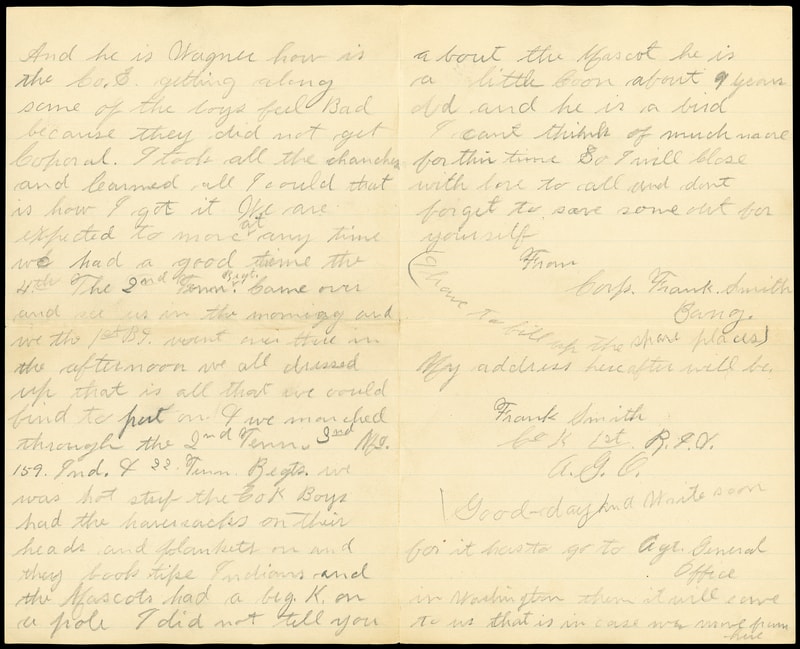 And he is Wagner how is
the Co. E. getting along
some of the boys feel Bad
because they did not get
Coporal. I took all the chanches
and learned all I could that
is how I got it We are
expected to move at any time
we had a good time the
4th The 2nd Tenn. Regt. Came over
and see us in the morning and
we the 1st R.I. went over there in
the afternoon we all dressed
up that is all that we would
find to put on & we marched
through the 2nd Tenn. 3rd
159. Ind. & 22. Tenn. Regts. we
was hot stuf the Co K Boys
had the haversacks on their
heads and blankets on and
they look like Indians and
the Mascots had a big. K. on
a pole I did not tell you
about the Mascot he is
a little Coon about 9 years
old and he is a bird
I cant think of much more
for this time So I will Close
with love to all and dont
forget to save some out for
yourself
From
Corp. Frank. Smith
Bang.
(O have to fill up the spare places)
My address here after will be.
Frank Smith
Co K 1st. R.I.V.
A.G.O.
Good-day And Write soon
for it has to go to Agt. General
Office
in Washington then it will come
to us that is in case we move from
here